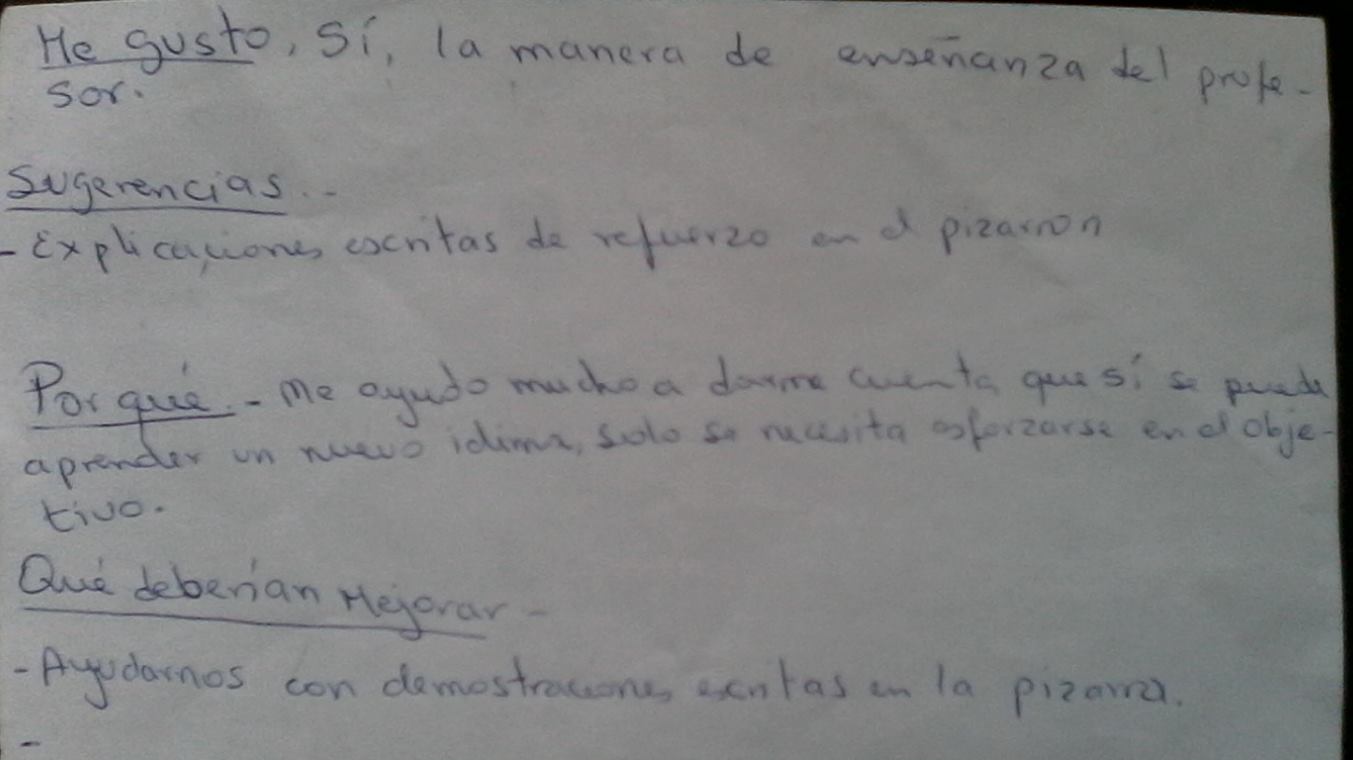 Me gusto, Sí, la manera de enseñanza del profe-
sor.
Sugerencias.-
- Explicaciones escritas de refuerzo en el pizarron
Por qué.- Me ayudo mucho a darme cuenta que sí se puede
aprender un nuevo idima, solo se necesita esforzarse en el obje-
tivo.
Qué deberían Mejorar-
- Ayudarnos con demostraciones escritas en la pizarra.
-